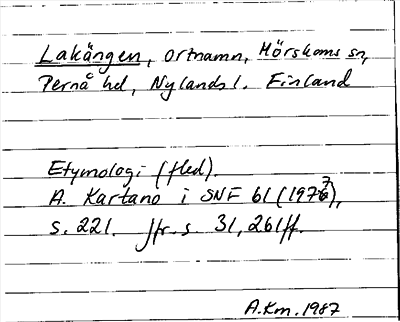 Lakängen, ortnamn, Mörskoms sn,
Pernå hd, Nylands l. Finland
Etymologi (fled).
A. Kartano i SNF 61 (1977),
s. 221. Jfr s. 31, 261ff.
A.Km. 1987